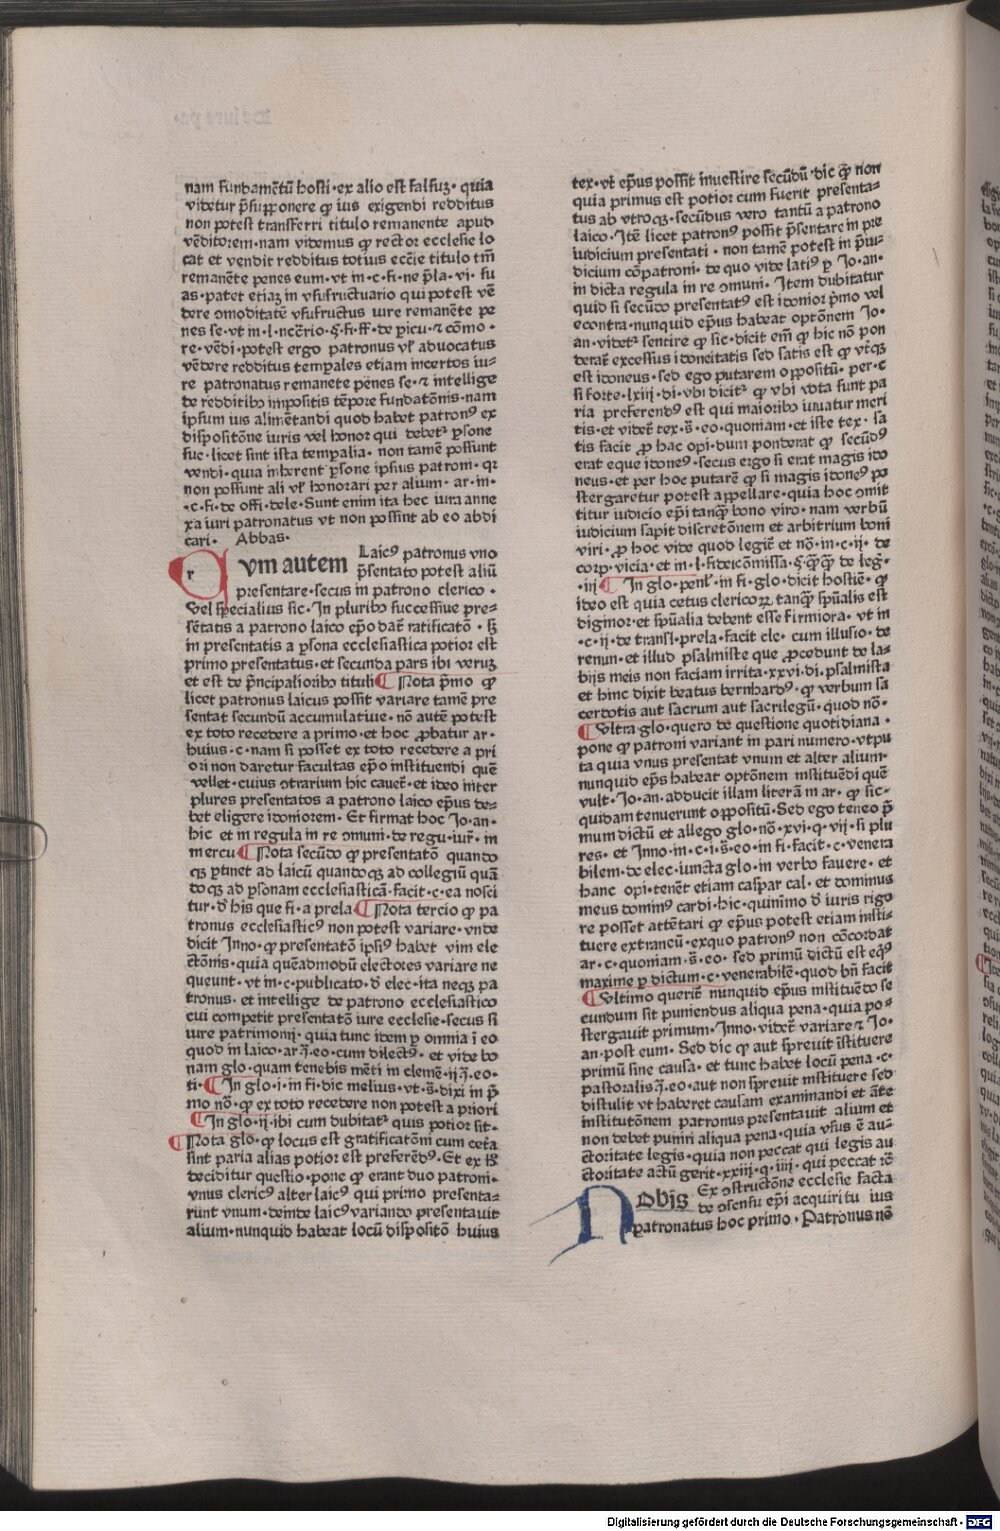 nam fundamētū hosti·ex alio est falsuꝫ· quia
videtur p̄supponere ꝙ ius exigendi redditus
non potest transferri titulo remanente apud
vēditorem·nam videmus ꝙ rector ecclesie lo
cat et vendit redditus totius eccīe titulo tm̄
remanēte penes eum·vt in·c·fi·ne p̄la·vi· su
as·patet etiaꝫ in vsufructuario qui potest vē
dere ↄmoditatē vsufructus iure remanēte pe
nes se·vt in·l·
re·vēdi·potest ergo patronus vl̓ aduocatus
vēdere redditus tempales etiam incertos iu⸗
re patronatus remanēte penes se·⁊ intellige
de redditibꝫ impositis tēpore fundatōnis·nam
ipsum ius alimētandi quod habet patronꝰ ex
dispositōne iuris vel honor qui debetᷣ ꝑsone
sue·licet sint ista tempalia· non tamē possunt
vendi·quia inherent ꝑsone ipsius patroni· qꝛ
non possunt ali vl̓ honorari per alium· ar·in·
·c·fi·de offi·dele·Sunt enim ita hec iura anne
xa iuri patronatus vt non possint ab eo abdi
cari· Abbas·
r vm autem Laicꝰ patronus vno
p̄sentato potest aliū
presentare·secus in patrono clerico·
Uel specialius sic·In pluribꝫ successiue pre⸗
sētatis a patrono laico epō dat̄ ratificatō· sꝫ
in presentatis a ꝑsona ecclesiastica potior est
primo presentatus·et secunda pars ibi veruꝫ
et est de p̄ncipalioribꝫ tituli ¶ Nota p̄mo ꝙ
licet patronus laicus possit variare tamē pre
sentat secundū accumulatiue· nō autē potest
ex toto recedere a primo·et hoc ꝓbatur ar·
huius·c·nam si posset ex toto recedere a pri
ori non daretur facultas epō instituendi quē
vellet·cuius ↄtrarium hic cauet̄·et ideo inter
plures presentatos a patrono laico epūs de⸗
bet eligere idoniorem· Et firmat hoc Jo·an·
hic et in regula in re ↄmuni·de regu·iur̄· in
mercu ¶ Nota secūdo ꝙ presentatō quando
qꝫ ꝑtinet ad laicū quandoqꝫ ad collegiū quā
doqꝫ ad ꝑsonam ecclesiasticā·facit·c·ea nosci
tur·d̓ his que fi·a prela ¶ Nota tercio ꝙ pa
tronus ecclesiasticꝰ non potest variare·vnde
dicit Inno·ꝙ presentatō ipsiꝰ habet vim ele
ctōnis·quia quēadmodū electores variare ne
queunt·vt in·c·publicato·d̓ elec·ita neqꝫ pa
tronus· et intellige de patrono ecclesiastico
cui competit presentatō iure ecclesie·secus si
iure patrimonij·quia tunc idem ꝑ omnia ī eo
quod in laico·ar·j̄·eo·cum dilectꝰ· et vide bo
nam glo·quam tenebis mēti in clemē·ij·j̄·eo·
ti· ¶ In glo·i·in fi·dic melius·vt·s̄·dixi in p̄
mo nō·ꝙ ex toto recedere non potest a priori
¶ In glo·ij·ibi cum dubitatᷣ quis potior sit·
¶ Nota glo·ꝙ locus est gratificatōni cum ceta
sint paria alias potior est preferēdꝰ·Et ex hͦ
deciditur questio·pone ꝙ erant duo patroni·
vnus clericꝰ alter laicꝰ qui primo presenta⸗
runt vnum·deinde laicꝰ variando presentauit
alium·nunquid habeat locū dispositō huius
tex·vt̄ epūs possit inuestire secūdū·dic ꝙ non
quia primus est potior cum fuerit presenta⸗
tus ab vtroqꝫ·secūdus vero tantū a patrono
laico·Itē licet patronꝰ possit p̄sentare in pre
iudicium presentati· non tamē potest in p̄iu⸗
dicium cōpatroni· de quo vide latiꝰ ꝑ Jo·an·
in dicta regula in re ↄmuni· Item dubitatur
quid si secūdo presentatꝰ est idonior p̄mo vel
econtra·nunquid epūs habeat optōnem Jo·
an·videtᷣ sentire ꝙ sic·dicit em̄ ꝙ hic nō pon
derat̄ excessus idoneitatis sed satis est ꝙ vtqꝫ
est idoneus·sed ego putarem oppositū· per·c
si forte·lxiij·di·vbi dicitᷣ ꝙ vbi vota sunt pa
ria preferendꝰ est qui maioribꝫ iuuatur meri
tis·et videt̄ tex·s̄·eo·quoniam·et iste tex· sa
tis facit ꝓ hac opi·dum ponderat ꝙ secūdꝰ
erat eque idoneꝰ·secus ergo si erat magis ido
neus·et per hoc putarē ꝙ si magis idoneꝰ po
stergaretur potest appellare·quia hoc ↄmit
titur iudicio epī tanqꝫ bono viro·nam verbū
iudicium sapit discretōnem et arbitrium boni
viri·ꝓ hoc vide quod legit̄ et nō·in·c·ij· de
corp·vicia·et in·l·fideicōmissa·§·
·iij ¶ In glo·penl̓·in fi·glo·dicit hostiē· ꝙ
ideo est quia cetus clericoꝝ tanqꝫ spūalis est
dignior·et spūalia debent esse firmiora· vt in
·c·ij·de transl·prela·facit cle· cum illusio· de
renun·et illud psalmiste que ꝓcedunt de la⸗
bijs meis non faciam irrita·xxvi·di·psalmista
et hinc dixit beatus bernhardꝰ·ꝙ verbum sa
cerdotis aut sacrum aut sacrilegū·quod nō·
¶ Ultra glo·quero de questione quotidiana·
pone ꝙ patroni variant in pari numero·vtpu
ta quia vnus presentat vnum et alter alium·
nunquid epūs habeat optōnem instituēdi quē
vult·Jo·an·adducit illam literā in ar·ꝙ sic·
quidam tenuerunt oppositū·Sed ego teneo p̄
mum dictū et allego glo·nō·xvi·q·vij·si plu
res·et Inno·in·c·i·s̄·eo·in fi·facit·c·venera
bilem·de elec·iuncta glo·in verbo fauere· et
hanc opi·tenēt etiam caspar cal·et dominus
meus dominꝰ cardi·hic·quinimo d̓ iuris rigo
re posset attētari ꝙ epūs potest etiam insti⸗
tuere extraneū·exquo patronꝰ non cōcordāt
ar·c·quoniam·s̄·eo· sed primū dictū est eqꝰ
maxime ꝑ dictum·c·venerabilē·quod bn̄ facit
¶ Ultimo querit̄ nunquid epūs instituēdo se
cundum sit puniendus aliqua pena·quia po⸗
stergauit primum·Inno·videt̄ variare⁊ Jo·
an·post eum· Sed dic ꝙ aut spreuit īstituere
primū sine causa· et tunc habet locū pena·c·
pastoralis·j̄·eo·aut non spreuit instituere sed
distulit vt haberet causam examinandi et āte
institutōnem patronus presentauit alium et
non debet puniri aliqua pena·quia vsus ē au⸗
ctoritate legis·quia non peccat qui legis au
ctoritate actū gerit·xxiij·q·iiij·qui peccat ⁊c̄
Nobis Ex ↄstructōne ecclesie facta
de ↄsensu epī acquiritᷣ ius
patronatus hoc primo· Patronus nō
Digitalisierung gefördert durch die Deutsche Forschungsgemeinschaft - DFG